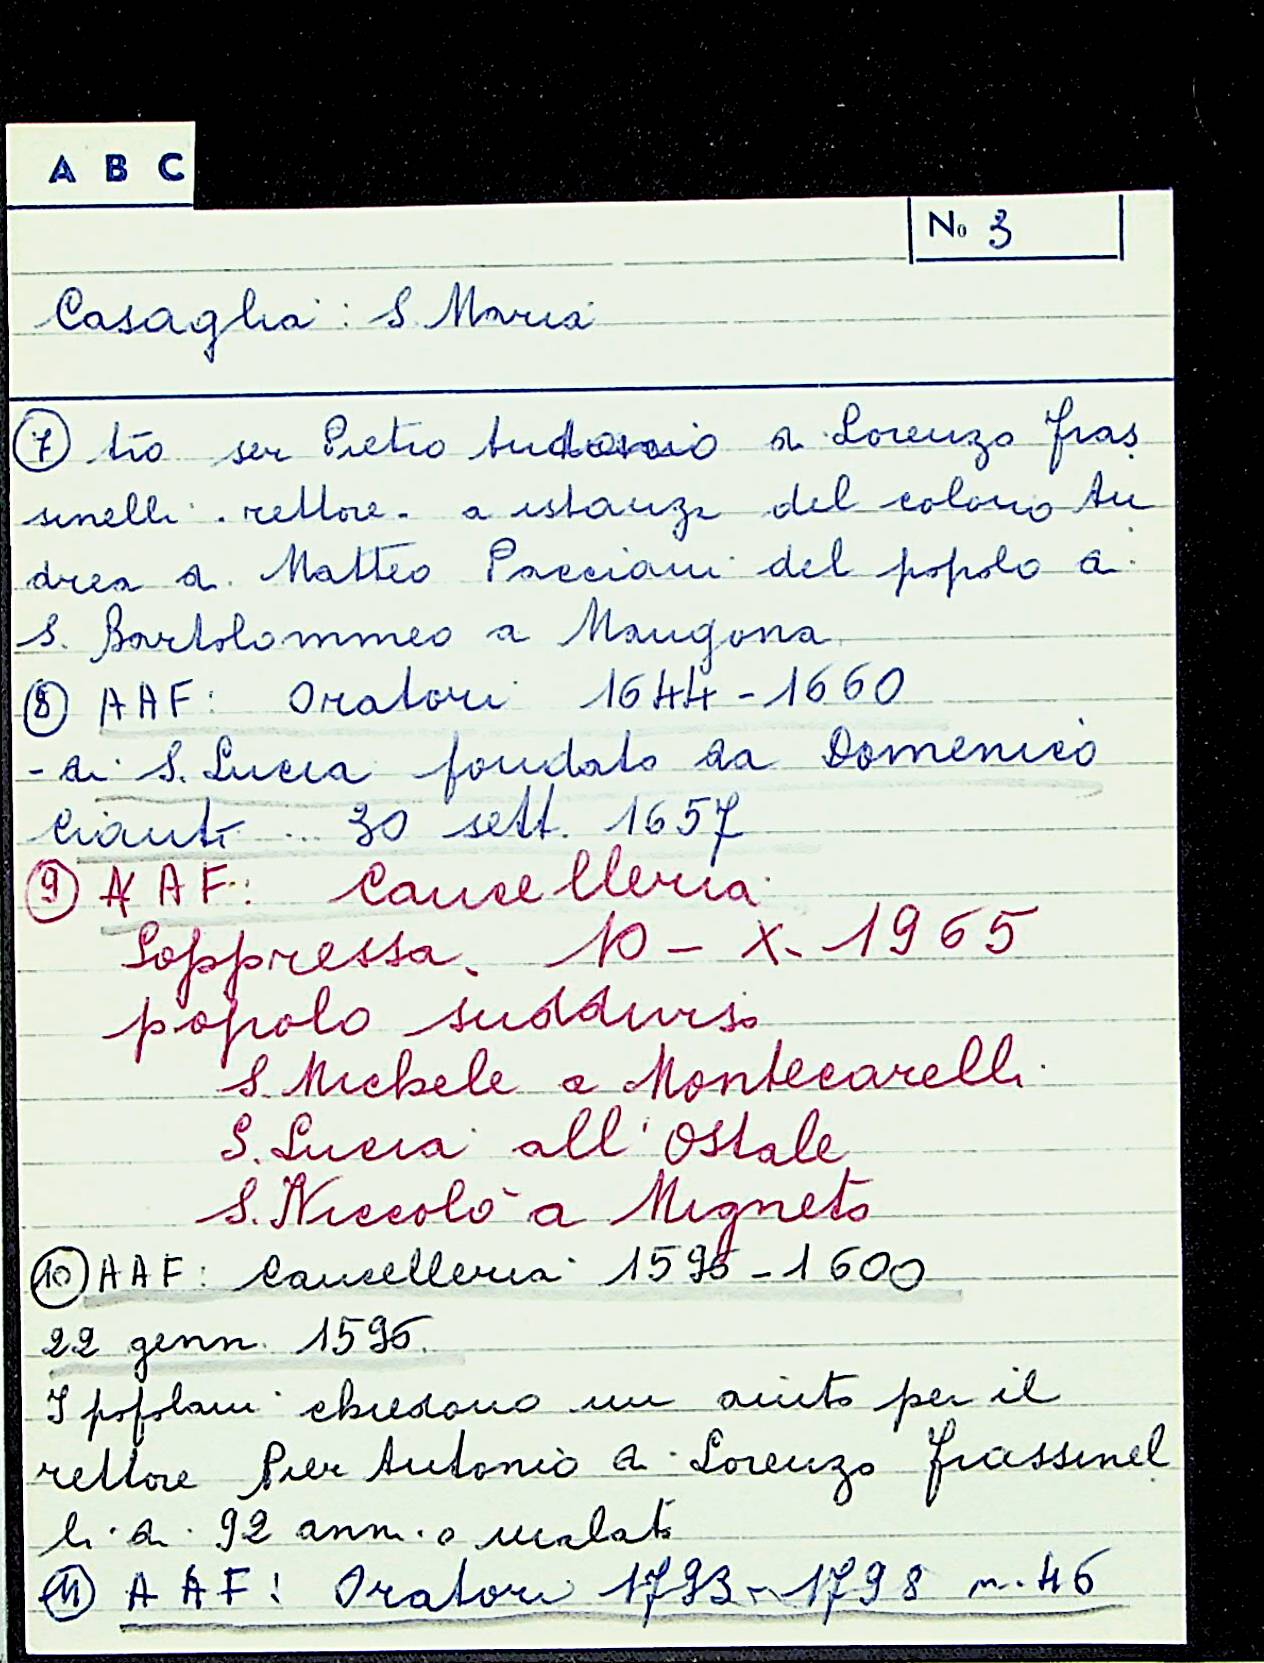 A B C
No 3
Casaglia: S. Maria
⑦ tro ser Pietro Antonio di Lorenzo Fras
sinelli. rettore. a istanza del colono An
drea di Matteo Pacciani del popolo di
S. Bartolommeo a Mangona
⑧ AAF: Oratori 1644-1660
- di S. Lucia fondato da Domenico
Cianti ... 30 sett. 1657
⑨ AAF: Cancelleria
Soppressa. 10 - X - 1965
popolo suddiviso
S. Michele a Montecarelli
S. Lucia all'Ostale
S. Niccolò a Migneto
⑩ AAF: Cancelleria 1596-1600
22 genn. 1596.
I popolani chiedono un aiuto per il
rettore Pier Antonio di Lorenzo Frassinel
li di 92 anni. o malato
⑪ AAF: Oratori 1793-1798 n. 46